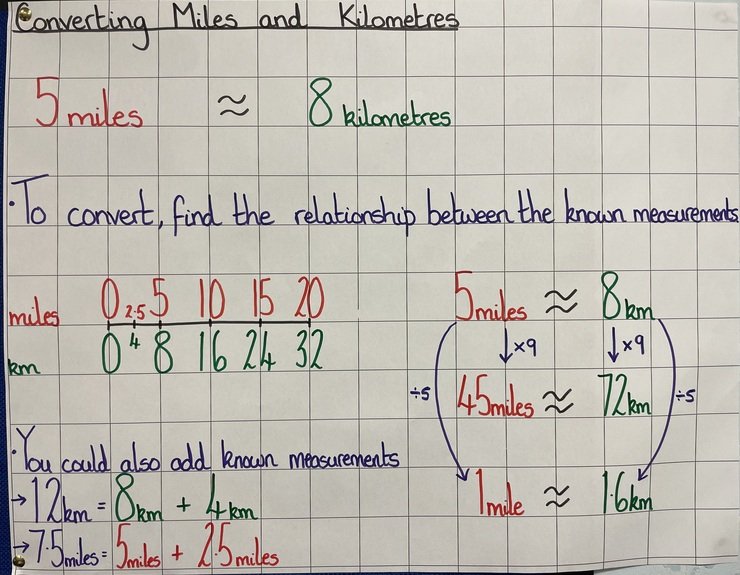 Converting Miles and Kilometres
5 miles ≈ 8 kilometres
·To convert, find the relationship between the known measurements
miles 0 2.5 5 10 15 20
km 0 4 8 16 24 32
5 miles ≈ 8 km
↓×9 ↓×9
÷5 45 miles ≈ 72 km ÷5
1 mile ≈ 1.6 km
·You could also add known measurements
→ 12 km = 8 km + 4 km
→ 7.5 miles = 5 miles + 2.5 miles